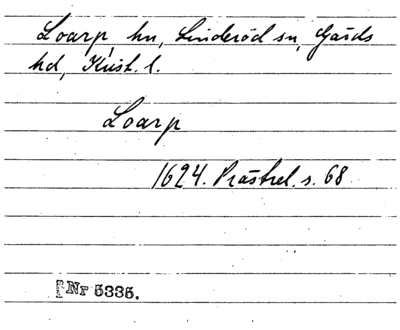 Loarp, hn, Linderöd sn, Gärds
hd, Krist. l.
Loarp
1624. Prästrel. s. 68
Nr 5335.